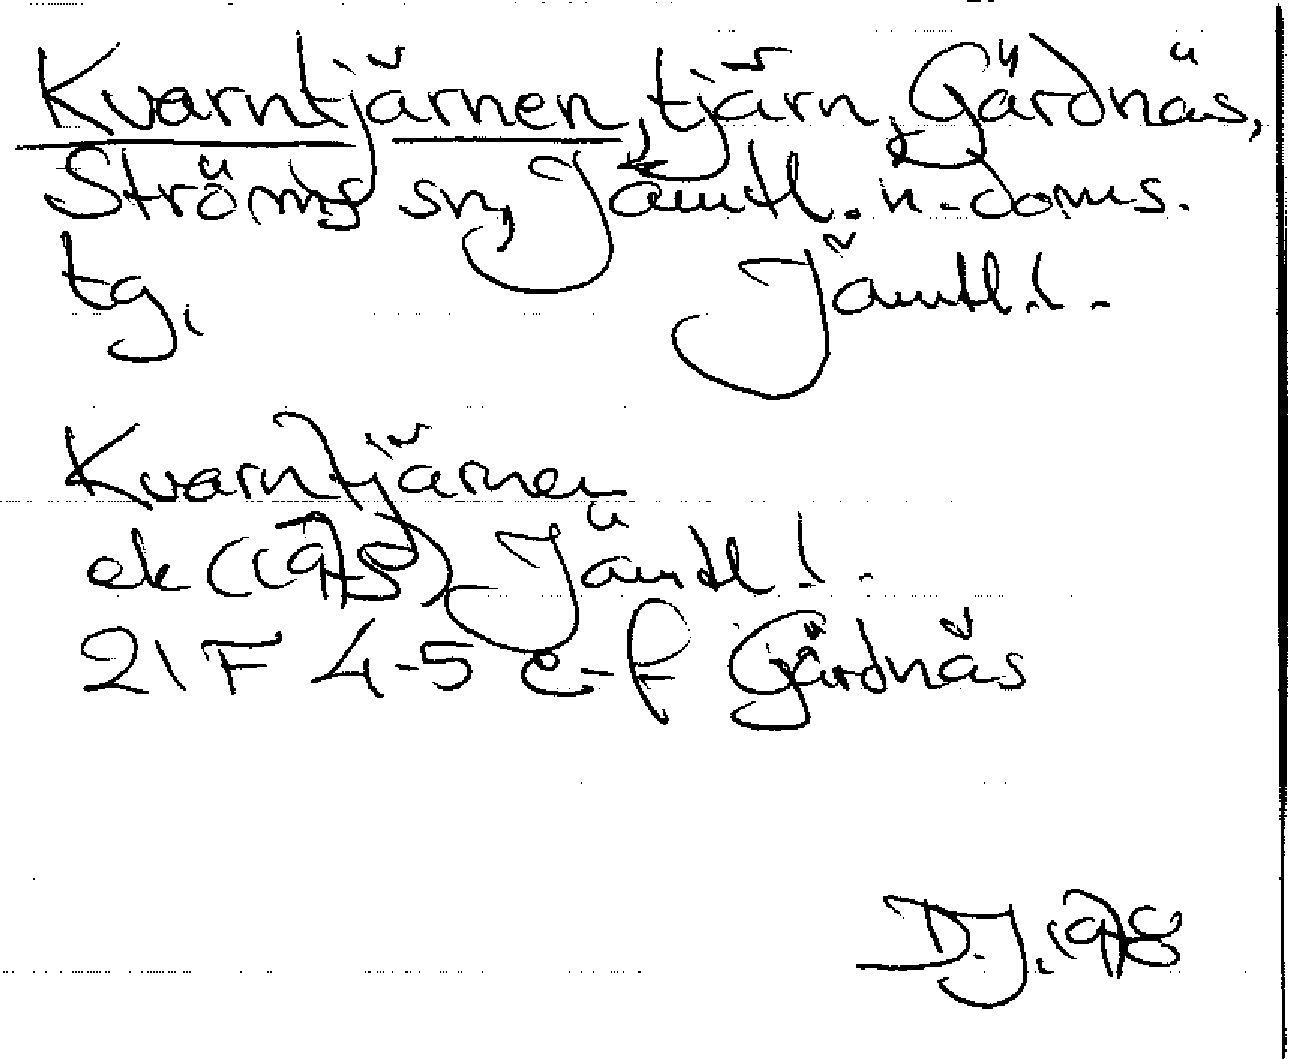 Kvarntjärnen, tjärn, Gärdnäs,
Ströms sn, Jämtl. n. doms.
tg. Jämtl.l.
Kvarntjärnen
ek (1975) Jämtl l.
21F 4-5 e-f Gärdnäs
D.J. 1978